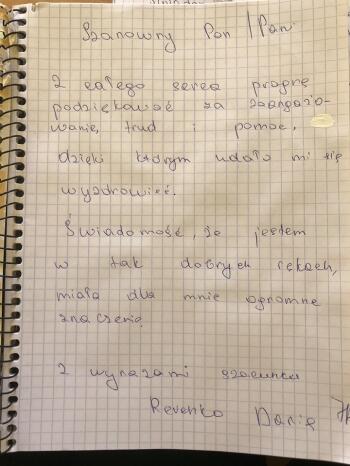 Szanowny Pan / Pani
Z całego serca pragnę
podziękować za zaangażo-
wanie, trud i pomoc,
dzięki którym udało mi się
wyzdrowieć.
Świadomość, że jestem
w tak dobrych rękach,
miała dla mnie ogromne
znaczenie.
Z wyrazami szacunku
Revenko Daria